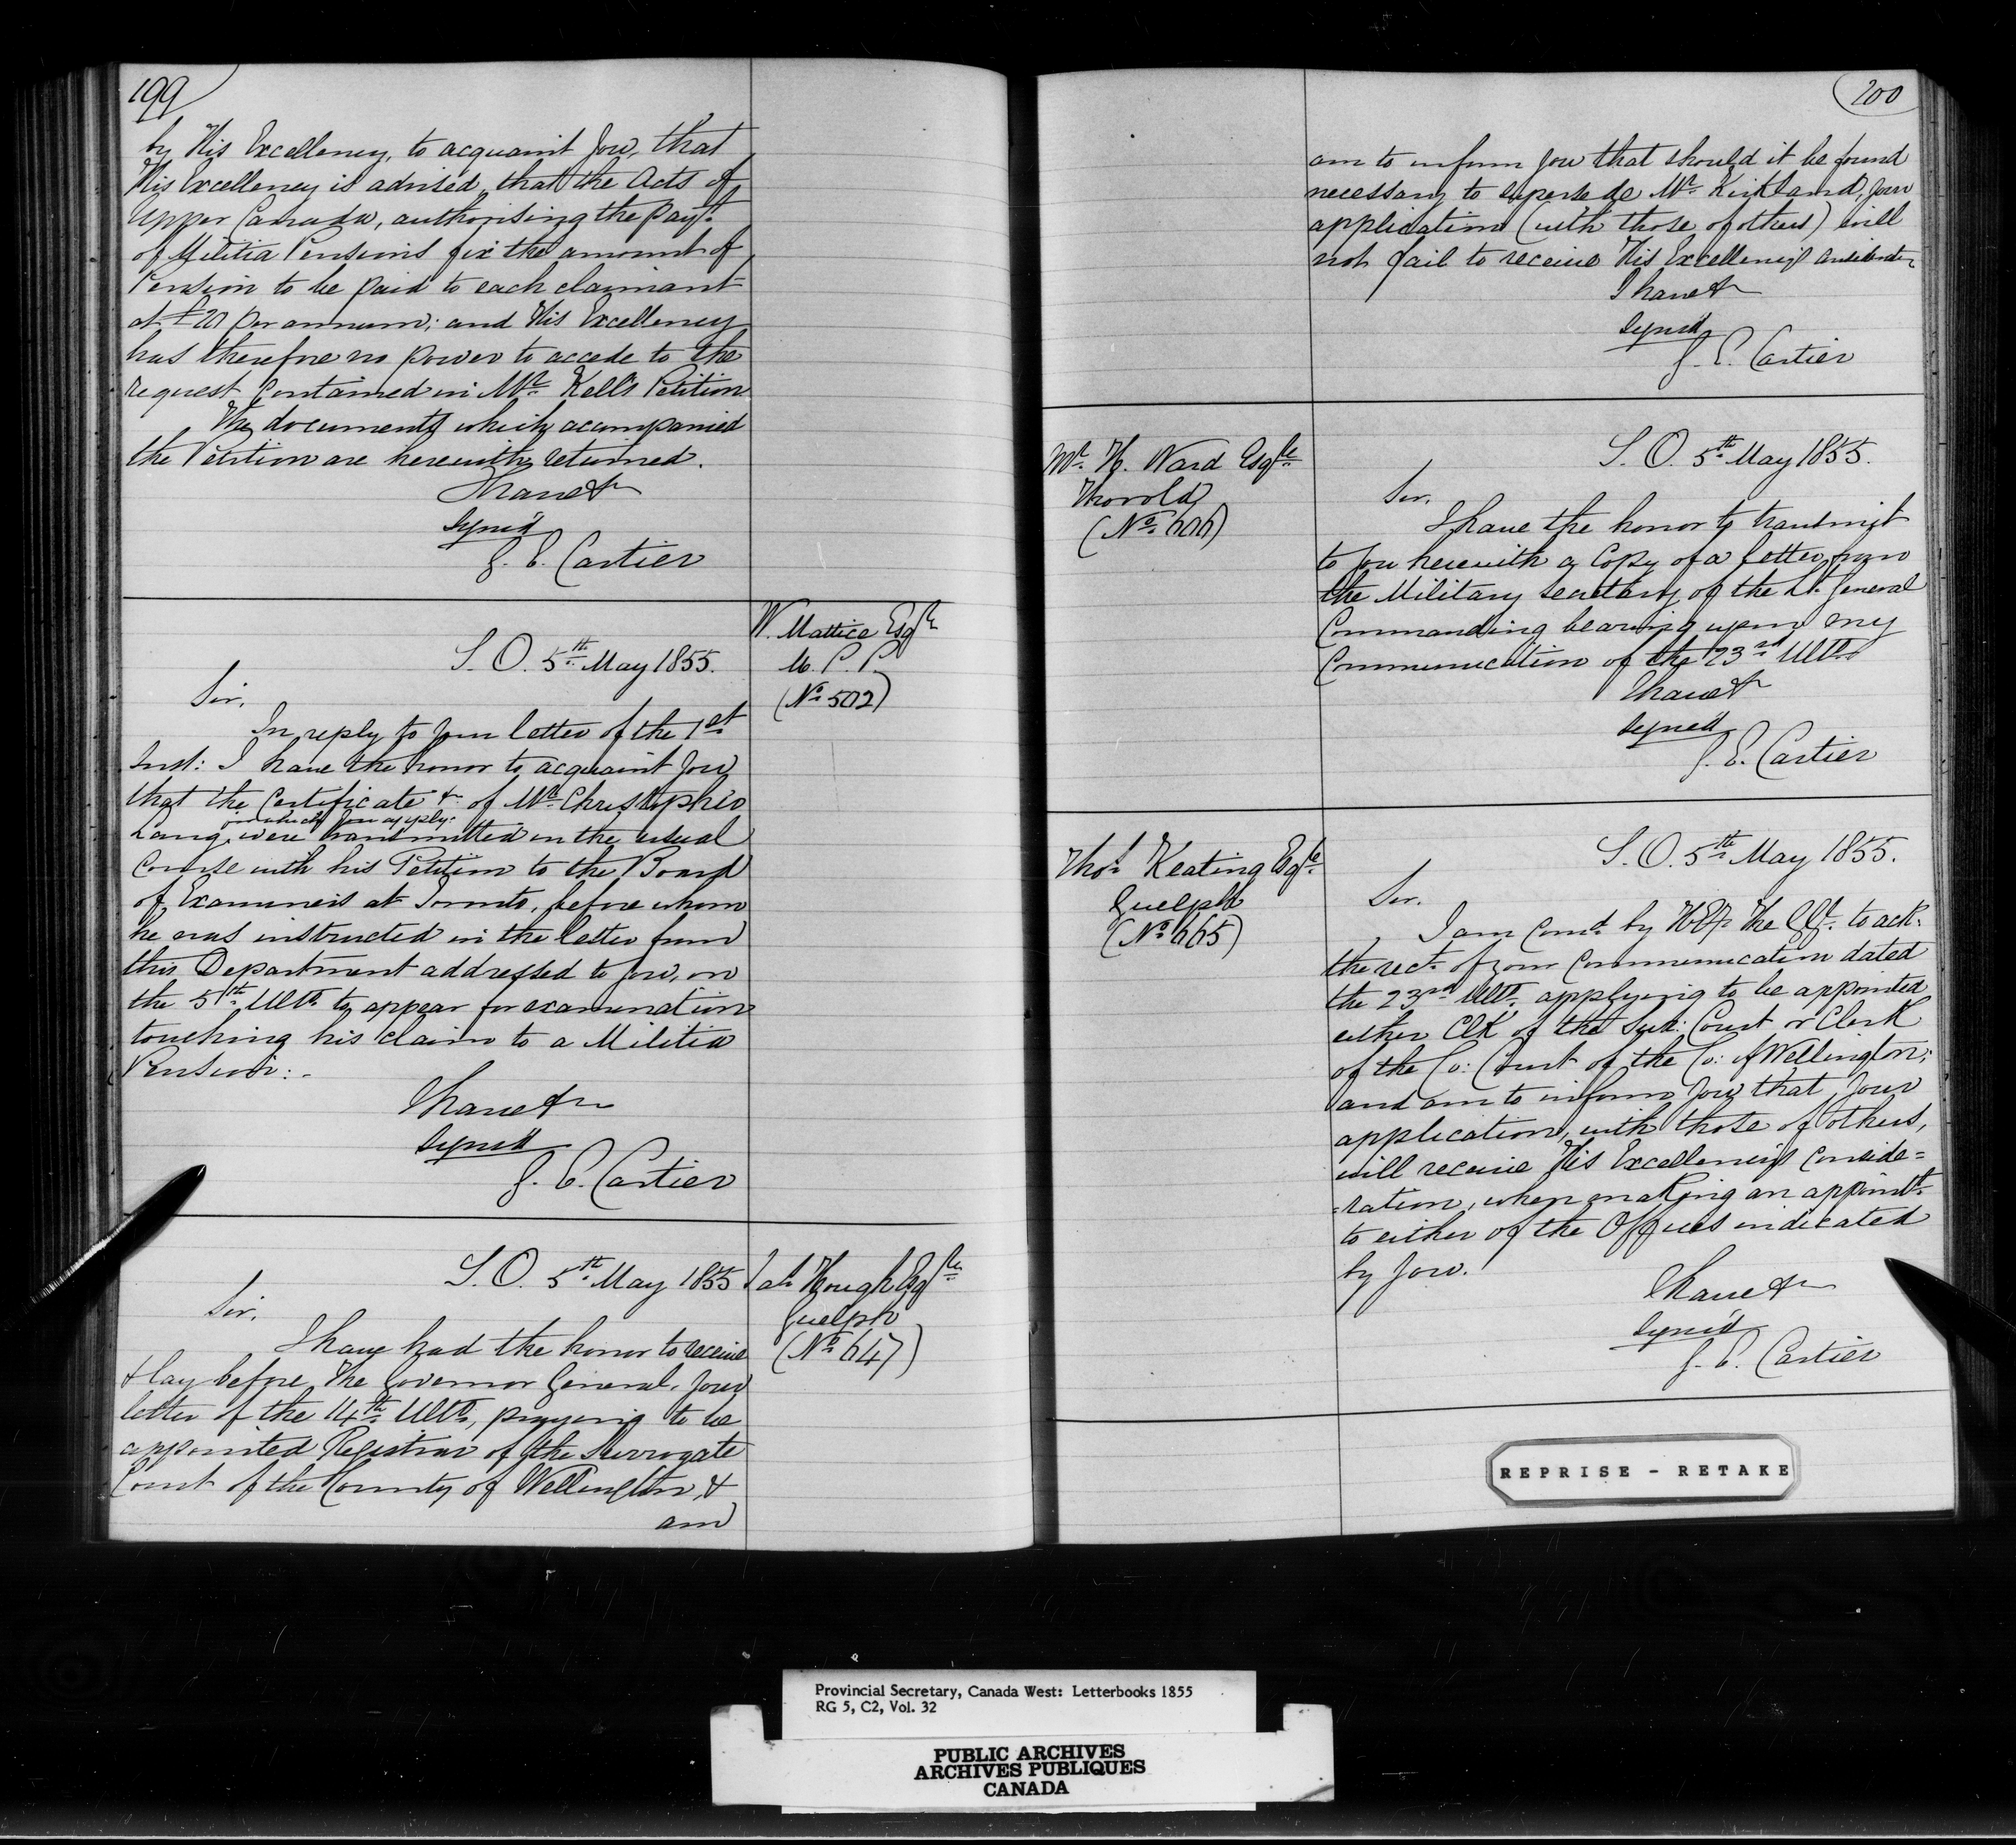 199
by His Excellency, to acquaint you, that
His Excellency is advised, that the Acts of
Upper Canada, authorising the Payt.
of Militia Pensions fix the amount of
Pension to be paid to each claimant
at £20 per annum; and His Excellency
has therefore no power to accede to the
request contained in Mr. Kell's Petition
The documents which accompanied
the Petition are herewith returned.
I have &
signed
G. E. Cartier
W. Mattice Esqre
M. P. P.
(No. 502)
S. O. 5th May 1855.
Sir,
In reply to your letter of the 1st
Inst: I have the honor to acquaint you
that the Certificate &c of Mr. Christopher
for which you apply:
Lang, were transmitted in the usual
course with his Petition to the Board
of Examiners at Toronto, before whom
he was instructed in the letter from
this Department addressed to you, on
the 5th Ulto. to appear for examination
touching his claim to a Militia
Pension: -
I have &c
signed
G. E. Cartier
Hough Esqre
Guelph
(No. 647)
S. O. 5th May 1855
Sir,
I have had the honor to receive
& lay before The Governor General, your
letter of the 14th Ulto, praying to be
appointed Registrar of the Surrogate
Court of the County of Wellington, &
am
200
am to inform you that should it be found
necessary to supersede Mr. Kirkland, your
application (with those of others) will
not fail to receive His Excellency's consideratn
I have &
signed
G. E. Cartier
Mr. H. Ward Esqre
Thorold
(No. 606)
S. O. 5th May 1855.
Sir,
I have the honor to transmit
to you herewith a Copy of a letter from
the Military Secretary of the Lt. General
Commanding bearing upon my
Communication of the 23rd Ulto.
I have &
signed
G. E. Cartier
Thos. Keating Esqre
Guelph
(No. 665)
S. O. 5th May 1855.
Sir.
I am comd. by H. Ey. The G.G. to ack:
the rect. of your Communication dated
the 23rd Ulto. applying to be appointed
either Clk of the Surr: Court or Clerk
of the Co: Court of the Co: of Wellington;
and am to inform you that your
application, with those of others,
will receive His Excellency's conside=
=ration, when making an appointt.
to either of the Offices indicated
by you.
I have &c
signed
G. E. Cartier
REPRISE - RETAKE
Provincial Secretary, Canada West: Letterbooks 1855
RG 5, C2, Vol. 32
PUBLIC ARCHIVES
ARCHIVES PUBLIQUES
CANADA